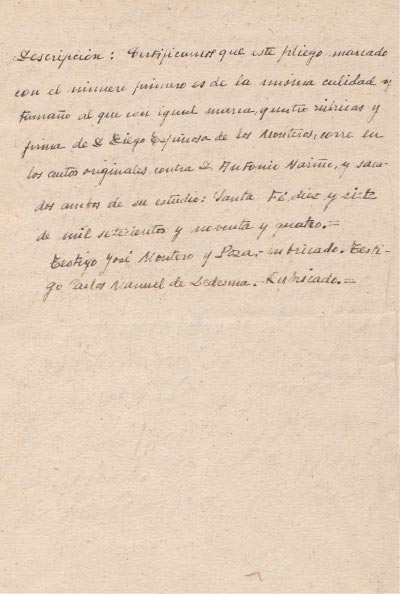 Descripción: Certificamos que este pliego marcado
con el número primero es de la misma calidad y
tamaño al que con igual marca, quatro rúbricas y
firma de D. Diego Espinosa de los Monteros, corre en
los autos originales contra D. Antonio Nariño, y saca-
dos ambos de su estudio: Santa Fé diez y siete
de mil setecientos y noventa y quatro.=
Testigo José Montero y Paza.- rubricado. Testi-
go Carlos Manuel de Ledesma. Rubricado.=